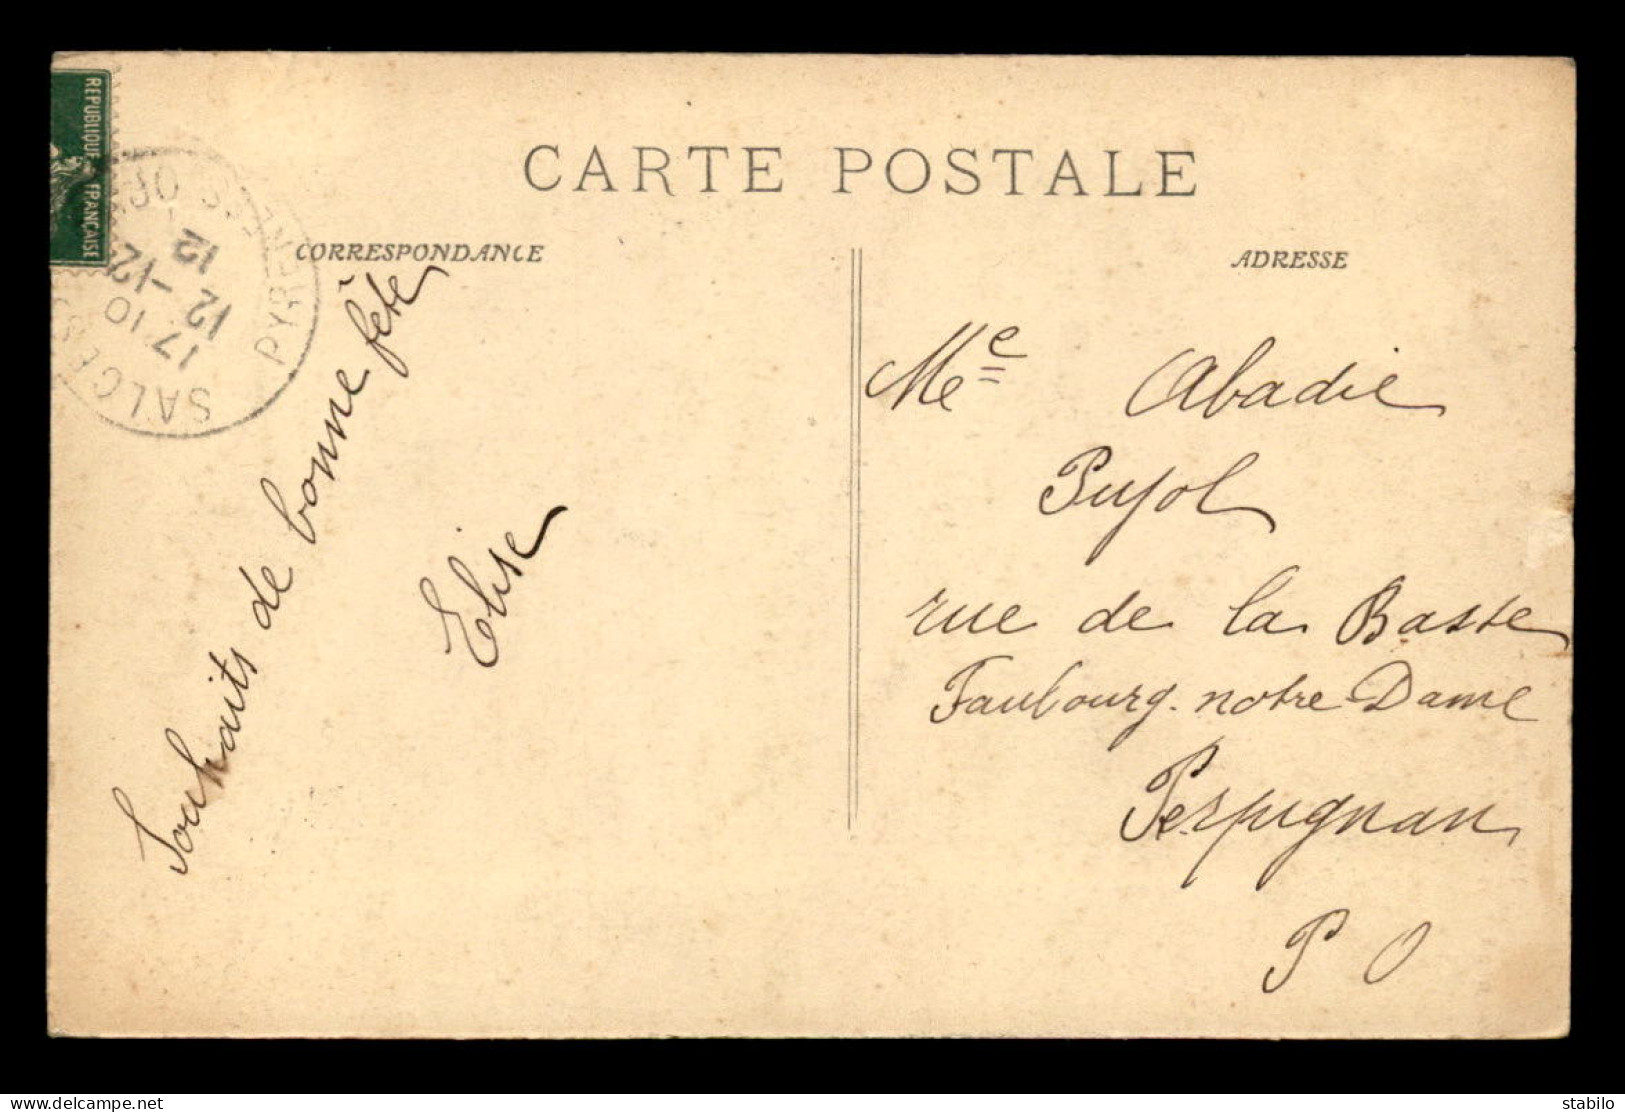 CARTE POSTALE
CORRESPONDANCE
ADRESSE
REPUBLIQUE FRANÇAISE
SALCES
17 10
12 -12
12
PYRÉNÉES OR
Souhaits de bonne fête
Elise
Me Abadie
Pujol
rue de la Basse
Faubourg. notre Dame
Perpignan
P O
www.delcampe.net
stabilo